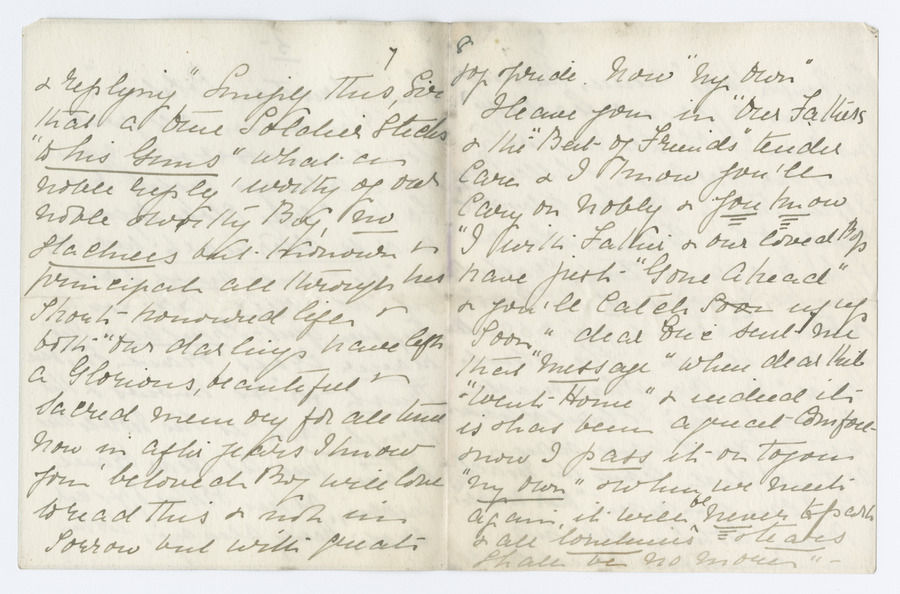 7
& replying "Simply this, Sir
that a true Soldier Sticks
"to his Guns" what a
noble reply! worthy of our
noble & worthy Boy, no
Slackness but Honour &
principal all through his
Short honoured life &
both "our darlings have left
a Glorious, beautiful &
Sacred memory for all time
now in after years I know
your beloved Boy will love
to read this & not in
Sorrow but with great
8
joy & pride. Now "My Own"
I leave you in "Our Fathers
& the "Best of Friends" tender
Care & I know you'll
Carry on nobly & you know
"I with Father & our loved Boys
have just "Gone Ahead"
& you'll Catch Soon us up
Soon" dear one sent me
this "message" when dear
"Went Home" & indeed it
is & has been a great Comfort
& now I pass it on to you
"my own" & when we meet
again, it will be never to part
& all loneliness & tears
Shall be no more" -